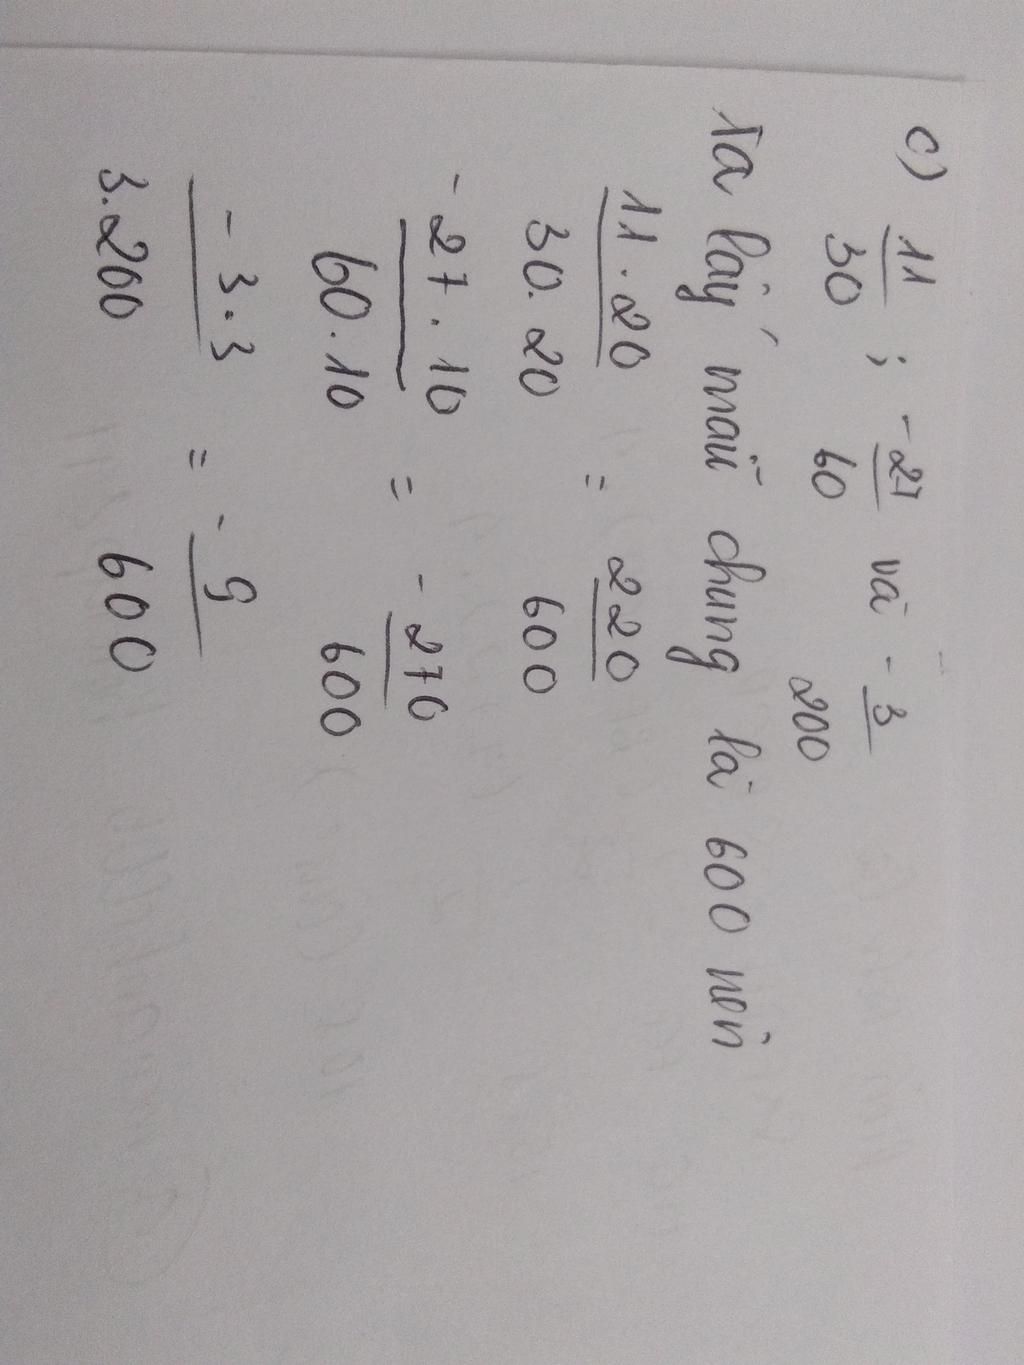 c) 11/30 ; -27/60 và -3/200
Ta lấy mẫu chung là 600 nên
11.20/30.20 = 220/600
-27.10/60.10 = -270/600
-3.3/3.200 = -9/600